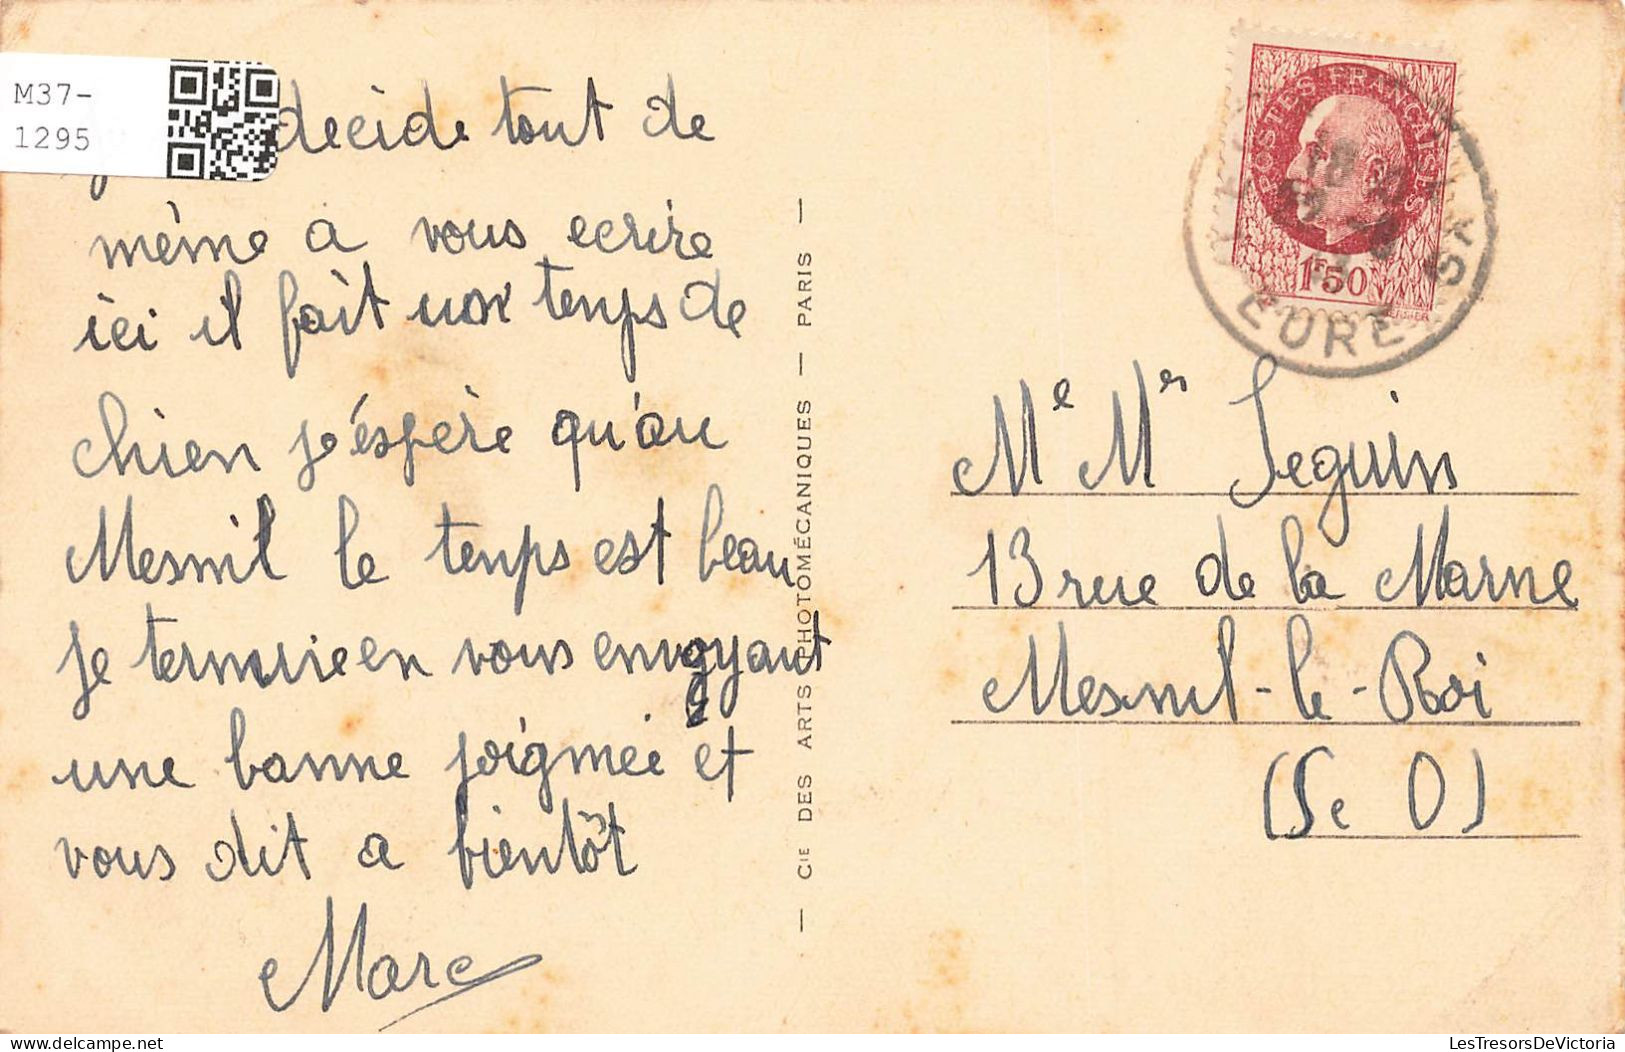 M37-
1295
decide tout de
même a vous ecrire
ici il fait un temps de
chien j'éspère qu'au
Mesnil le temps est beau
je termine en vous envoyant
une bonne poignée et
vous dit a bientôt
Marc
— CIE DES ARTS PHOTOMÉCANIQUES — PARIS —
POSTES FRANÇAISES
1F50
EURE
18
Me Mr Seguin
13 rue de la Marne
Mesnil-le-Roi
(Se O)
delcampe.net
LesTresorsDeVictoria